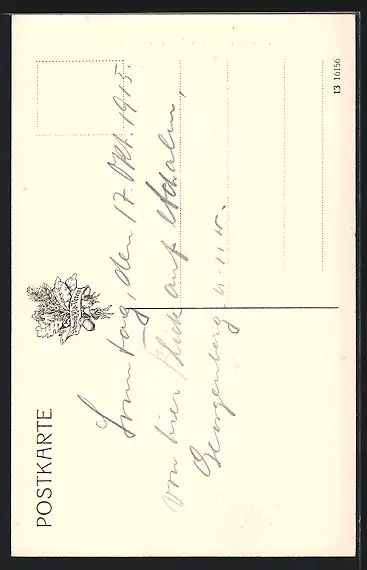 POSTKARTE
Sonntag, den 17. Okt. 1915.
von hier Blick auf Achalm,
Georgenberg u.s.w.
13 16156